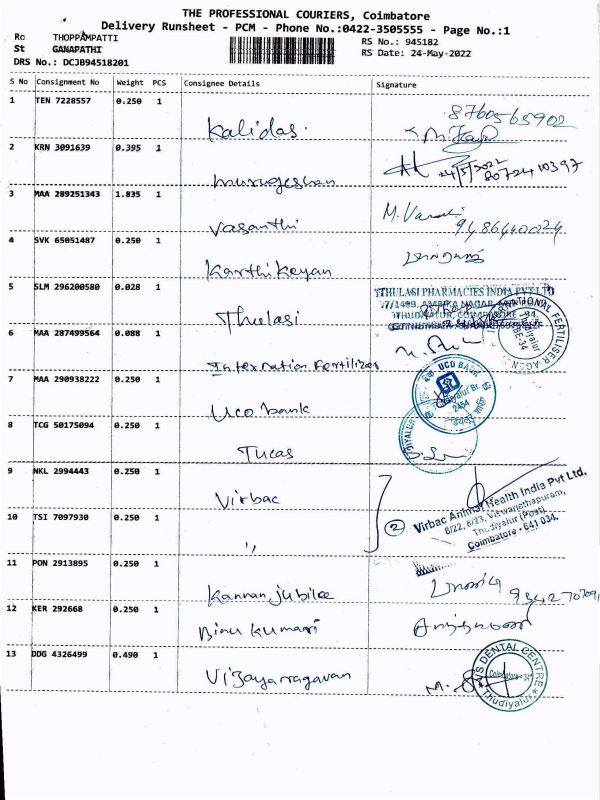 THE PROFESSIONAL COURIERS, Coimbatore
Delivery Runsheet - PCM - Phone No.:0422-3505555 - Page No.:1
Ro THOPPAMPATTI
RS No.: 945182
St GANAPATHI
RS Date: 24-May-2022
DRS No.: DCJB94518201
S No Consignment No Weight PCS Consignee Details Signature
1 TEN 7228557 0.250 1 Kalidas. 8760565902
2 KRN 3091639 0.395 1 murugeshan 24/5/2022 8072410397
3 MAA 289251343 1.835 1 Vasanthi 9486440024
4 SVK 65051487 0.250 1 Karthikeyan
5 SLM 296200580 0.028 1 Thulasi
THULASI PHARMACIES INDIA PVT LTD
6 MAA 287499564 0.088 1 Internation Fertilizer
NATIONAL FERTILISER AGENC
7 MAA 290938222 0.250 1 Uco bank
UCO BANK
2464
8 TCG 50175094 0.250 1 Tucas
9 NKL 2994443 0.250 1 Virbac
2
Virbac Animal Health India Pvt Ltd.
6/22, 6/23, Viswanethapuram,
Thudiyalur (Post)
Coimbatore - 641 034.
10 TSI 7097930 0.250 1 ,,
11 PON 2913895 0.250 1 Kannan jubilee
12 KER 292668 0.250 1 Binu Kumari
13 DDG 4326499 0.490 1 Vijayarragavan
DENTAL CENTRE
Coimbatore - 34
Thudiyalur